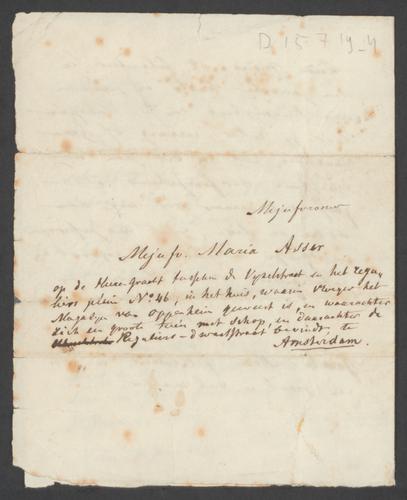 D 15 719-4
Mejufvrouw
Mejufv. Maria Asser
op de Heere Gracht tusschen de Vyzelstraat en het regu
liers plein No 46, in het huis, waarin vroeger het
Magazyn van Oppenheim geweest is, en waarachter
zich een groote tuin met schop, en daarachter de
Reguliers-dwarsstraat bevindt, te
Amsterdam.